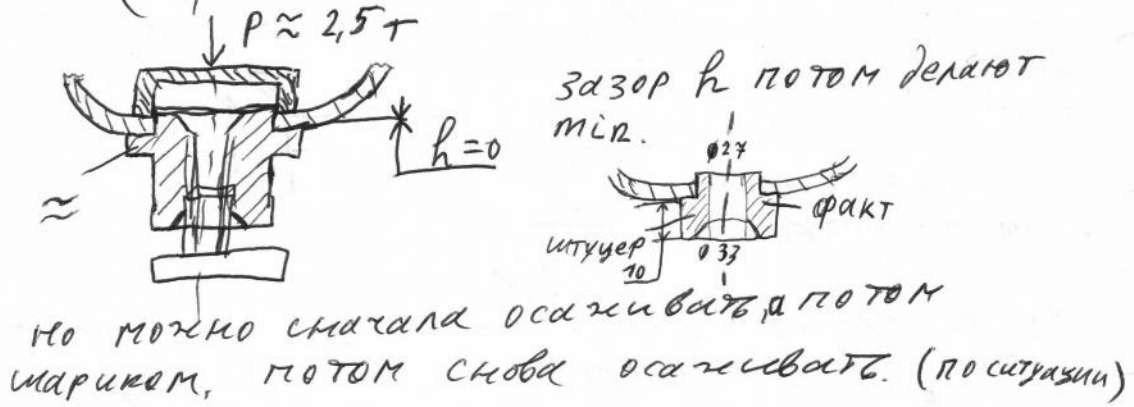 P ≈ 2,5 т
зазор h потом делают
min.
h = 0
≈
ø27
факт
штуцер
10
ø 33
но можно сначала осаживать, а потом
шариком, потом снова осаживать. (по ситуации)